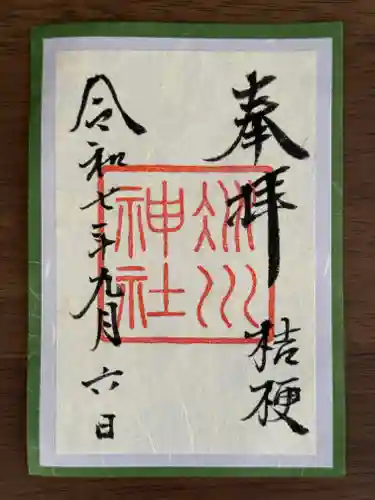 奉拝
桔梗
川
神社
令和七年九月六日